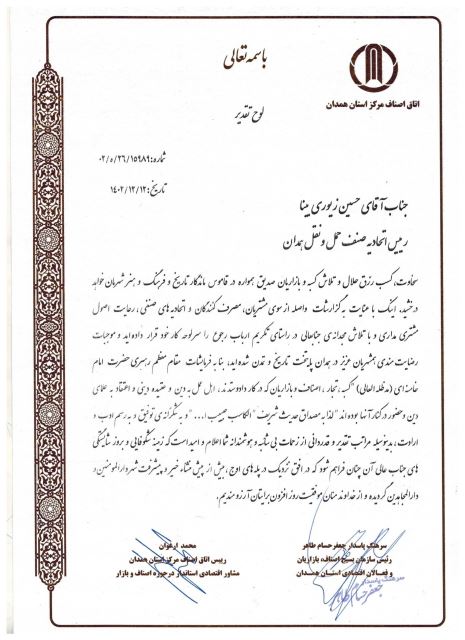 باسمه تعالی
اتاق اصناف مرکز استان همدان
لوح تقدیر
شماره: ۰۲/ه/۲۶/۱۵۹۸۹
تاریخ: ۱۴۰۲/۱۲/۱۲
جناب آقای حسین زیوری بینا
رییس اتحادیه صنف حمل و نقل همدان
سخاوت، کسب رزق حلال و تلاش کسبه و بازاریان صدیق همواره در قاموس ماندگار تاریخ و فرهنگ و هنر شهرمان خواهد
درخشید. اینک با عنایت به گزارشات واصله از سوی مشتریان، مصرف کنندگان و اتحادیه های صنفی، رعایت اصول
مشتری مداری و با تلاش مجدانه ی جنابعالی در راستای تکریم ارباب رجوع را سرلوحه کار خود قرار داده اید و موجبات
رضایت مندی همشهریان عزیز در همدان پایتخت تاریخ و تمدن شده اید، بنا به فرمایشات مقام معظم رهبری حضرت امام
خامنه ای (مدظله العالی) "کسبه، تجار، اصناف و بازاریان که در کار دادوستدند، اهل عمل به دین و عقیده دینی و اعتقاد به علمای
دین و حضور در کنار آنها بوده اند" لذا به مصداق حدیث شریف "الکاسب حبیب ا..." و به شکرانه ی توفیق و به رسم ادب و
ارادت، بدینوسیله مراتب تقدیر و قدردانی از زحمات بی شائبه و هوشمندانه شما اعلام و امید است که زمینه شکوفایی و بروز شایستگی
های جناب عالی آن چنان فراهم شود که در افق نزدیک در پله های اوج، بیش از پیش منشاء خیر و پیشرفت شهر دارالمومنین و
دارالمجاهدین گردیده و از خداوند منان موفقیت روز افزون برایتان آرزومندیم.
سرهنگ پاسدار جعفر حسام طاهر
رئیس سازمان بسیج اصناف، بازاریان
و فعالان اقتصادی استان همدان
محمد ارغوان
رییس اتاق اصناف مرکز استان همدان
مشاور اقتصادی استاندار در حوزه اصناف و بازار
سرهنگ پاسدار
جعفر حسام طاهر